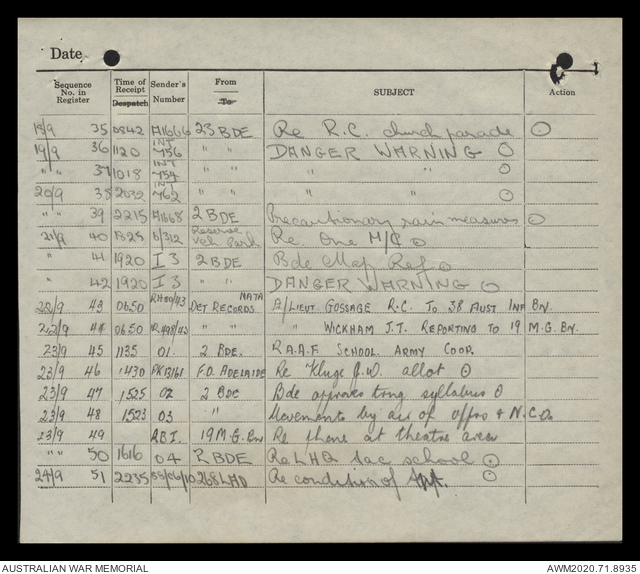 Date
Sequence No. in Register Time of Receipt Despatch Sender's Number From To SUBJECT Action
18/9 35 0842 A1666 23 BDE Re R.C. church parade
19/9 36 1120 INT 756 " " DANGER WARNING
" " 37 1018 INT 754 " " " "
20/9 38 2032 INT 762 " " " "
" " 39 2215 A1668 2 BDE Precautionary rain measures
21/9 40 1825 Reserve Veh. Park Re. One M/C
" 41 1920 I 3 2 BDE Bde Map Ref.
" 42 1920 I 3 DANGER WARNING
22/9 43 0650 DET RECORDS NATA LIEUT GOSSAGE R.C. TO 38 AUST INF BN.
22/9 44 0650 " " " WICKHAM J.T. REPORTING TO 19 M.G. BN.
23/9 45 1135 01. 2 BDE. R.A.A.F SCHOOL. ARMY COOP.
23/9 46 1430 F.O. ADELAIDE Re Kluge J.W. allot
23/9 47 1525 02 2 BDE Bde approves trng syllabus
23/9 48 1523 03 " Movements by air of offrs & N.C.Os
23/9 49 RBI. 19 M.G. Bn Re phone at theatre area
" " 50 1616 04 2 BDE Re LHQ tac school
24/9 51 2235 268 LAD Re condition of
AUSTRALIAN WAR MEMORIAL AWM2020.71.8935